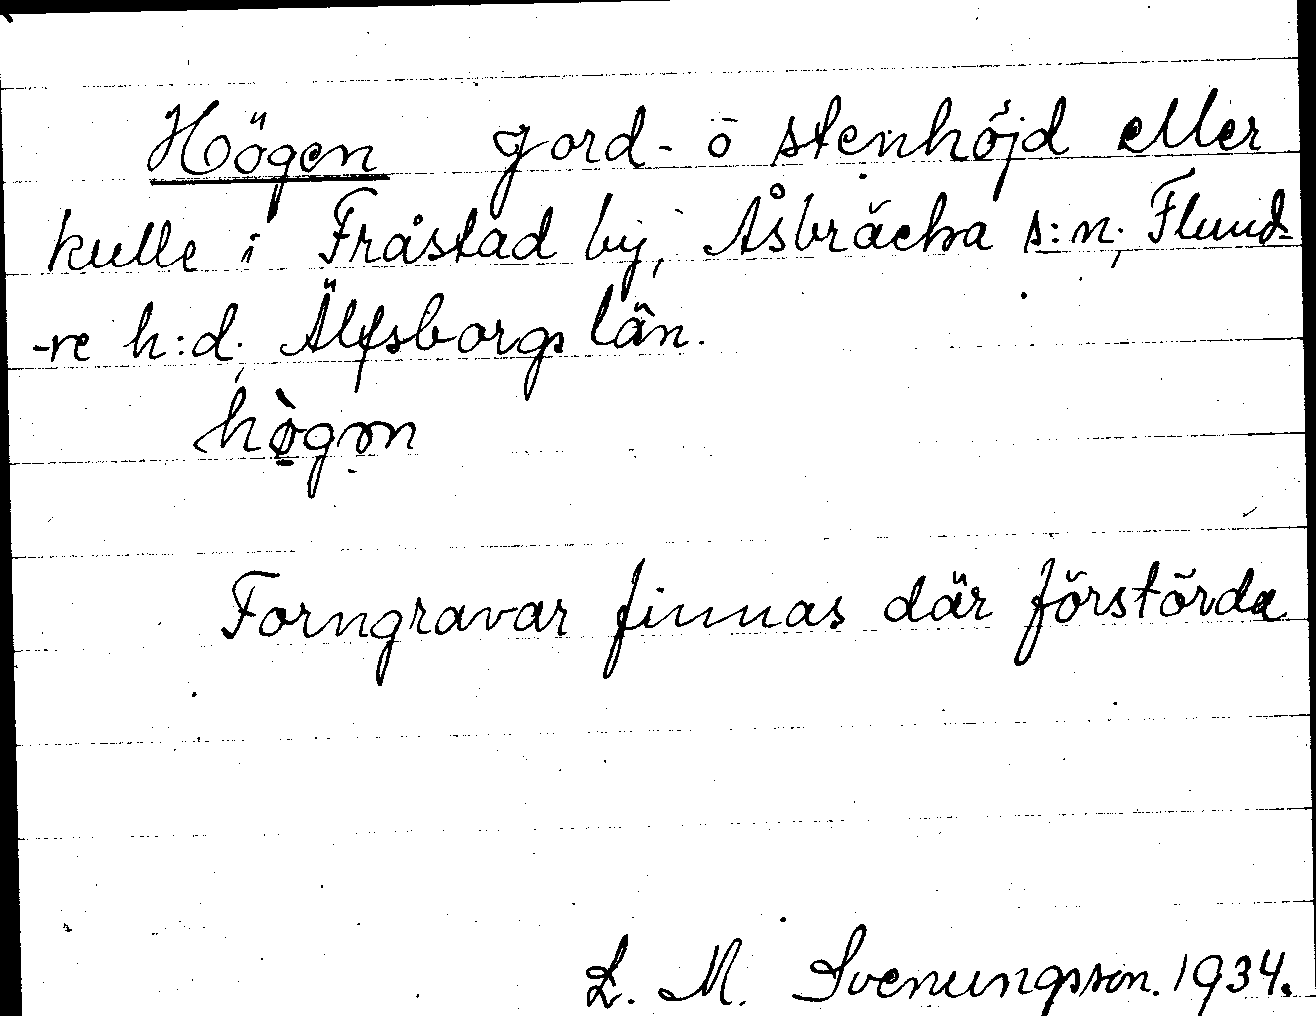 Högen jord- o stenhöjd eller
kulle i Fråstad by, Åsbräcka s:n; Flund-
-re h:d; Älfsborgs län.
hògən
Forngravar finnas där förstörda
L. M. Svenungsson. 1934.